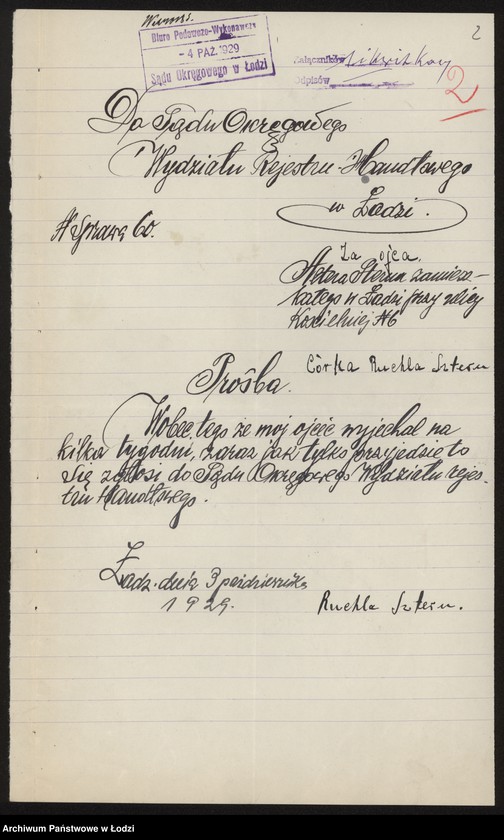 2
Biuro Podawczo-Wykonawcze
- 4 PAŹ. 1929
Sądu Okręgowego w Łodzi
Załączników
Odpisów
2
Do Sądu Okręgowego
Wydziału Rejestru Handlowego
w Łodzi.
N sprawy 60.
Za ojca
Sztern zamiesz-
kałego w Łodzi przy ulicy
Kościelniej N 6
Córka Ruchla Sztern
Prośba.
Wobec tego że moj ojciec wyjechał na
kilka tygodni, zaraz jak tylko przyjedzie to
się zgłosi do Sądu Okręgowego Wydziału rejes-
tru Handlowego.
Łódz. dnia 3 pazdziernika
1929.
Ruchla Sztern.
Archiwum Państwowe w Łodzi